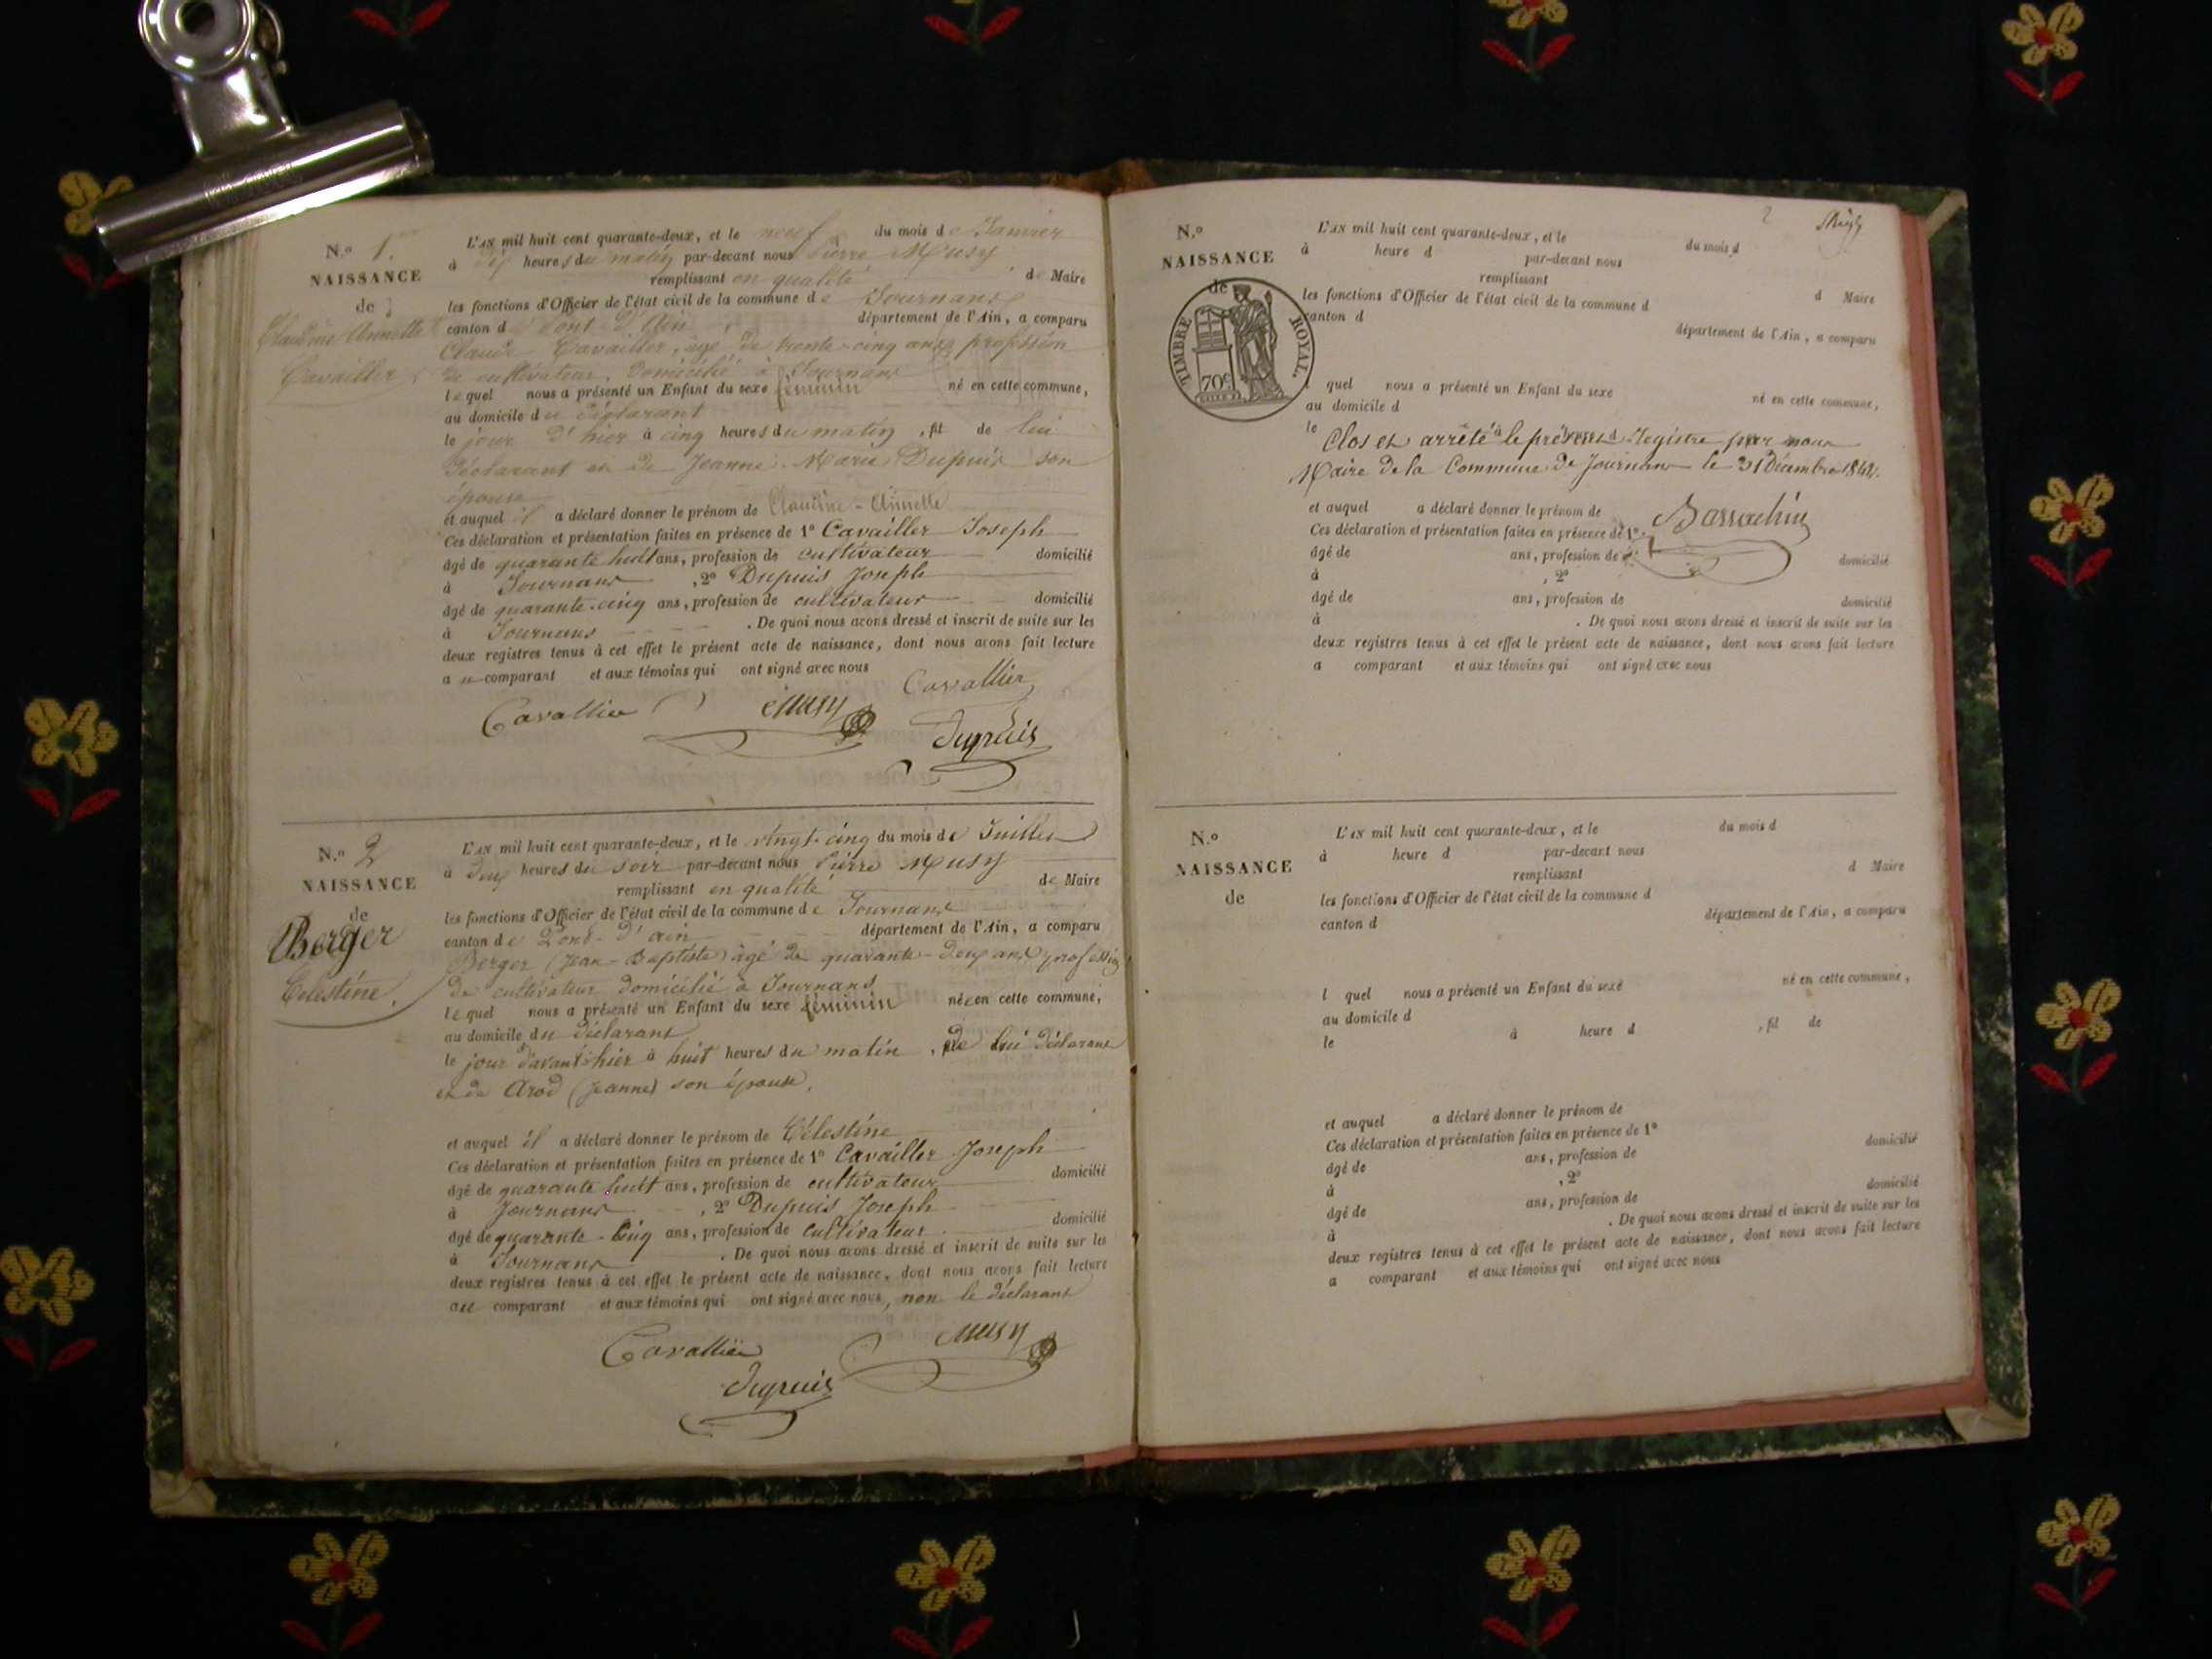 N.º 1.
NAISSANCE
de
Claudine Annette
Cavailler
L'AN mil huit cent quarante-deux, et le neuf du mois de Janvier
à dix heures du matin par-devant nous Pierre Musy
remplissant en qualité de Maire
les fonctions d'Officier de l'état civil de la commune de Journans
canton de Pont-d'Ain département de l'Ain, a comparu
Claude Cavailler, âgé de trente-cinq ans profession
de cultivateur, domicilié à Journans
lequel nous a présenté un Enfant du sexe féminin né en cette commune,
au domicile du déclarant
le jour d'hier à cinq heures du matin, fil de lui
déclarant et de Jeanne Marie Dupuis son
épouse
et auquel il a déclaré donner le prénom de Claudine-Annette
Ces déclaration et présentation faites en présence de 1º Cavailler Joseph
âgé de quarante huit ans, profession de cultivateur domicilié
à Journans, 2º Dupuis Joseph
âgé de quarante-cinq ans, profession de cultivateur domicilié
à Journans. De quoi nous avons dressé et inscrit de suite sur les
deux registres tenus à cet effet le présent acte de naissance, dont nous avons fait lecture
au comparant et aux témoins qui ont signé avec nous
Cavallier
Cavallier Musy
Dupuis
N.º 2
NAISSANCE
de
Berger
Celestine.
L'AN mil huit cent quarante-deux, et le vingt-cinq du mois de Juillet
à deux heures du soir par-devant nous Pierre Musy
remplissant en qualité de Maire
les fonctions d'Officier de l'état civil de la commune de Journans
canton de Pont-d'ain département de l'Ain, a comparu
Berger (Jean-Baptiste) âgé de quarante-deux ans profession
de cultivateur domicilié à Journans
lequel nous a présenté un Enfant du sexe féminin née en cette commune,
au domicile du déclarant
le jour d'avant-hier à huit heures du matin, de lui déclarant
et de Arod (Jeanne) son épouse.
et auquel il a déclaré donner le prénom de Célestine
Ces déclaration et présentation faites en présence de 1º Cavailler Joseph
âgé de quarante huit ans, profession de cultivateur domicilié
à Journans, 2º Dupuis Joseph
âgé de quarante-cinq ans, profession de cultivateur domicilié
à Journans. De quoi nous avons dressé et inscrit de suite sur les
deux registres tenus à cet effet le présent acte de naissance, dont nous avons fait lecture
au comparant et aux témoins qui ont signé avec nous, non le déclarant
Cavallier Musy
Dupuis
2
N.º
NAISSANCE
de
TIMBRE ROYAL.
70c
L'AN mil huit cent quarante-deux, et le du mois d
à heure d par-devant nous
remplissant d Maire
les fonctions d'Officier de l'état civil de la commune d
canton d département de l'Ain, a comparu
quel nous a présenté un Enfant du sexe né en cette commune,
au domicile d
le à
Clos et arrêté le présent Registre par nous
Maire de la Commune de Journans le 31 Décembre 1842.
et auquel a déclaré donner le prénom de
Ces déclaration et présentation faites en présence de 1º
âgé de ans, profession de domicilié
à , 2º
âgé de ans, profession de domicilié
à . De quoi nous avons dressé et inscrit de suite sur les
deux registres tenus à cet effet le présent acte de naissance, dont nous avons fait lecture
a comparant et aux témoins qui ont signé avec nous
N.º
NAISSANCE
de
L'AN mil huit cent quarante-deux, et le du mois d
à heure d par-devant nous
remplissant d Maire
les fonctions d'Officier de l'état civil de la commune d
canton d département de l'Ain, a comparu
l quel nous a présenté un Enfant du sexe né en cette commune,
au domicile d
le à heure d , fil de
et auquel a déclaré donner le prénom de
Ces déclaration et présentation faites en présence de 1º
âgé de ans, profession de domicilié
à , 2º
âgé de ans, profession de domicilié
à . De quoi nous avons dressé et inscrit de suite sur les
deux registres tenus à cet effet le présent acte de naissance, dont nous avons fait lecture
a comparant et aux témoins qui ont signé avec nous